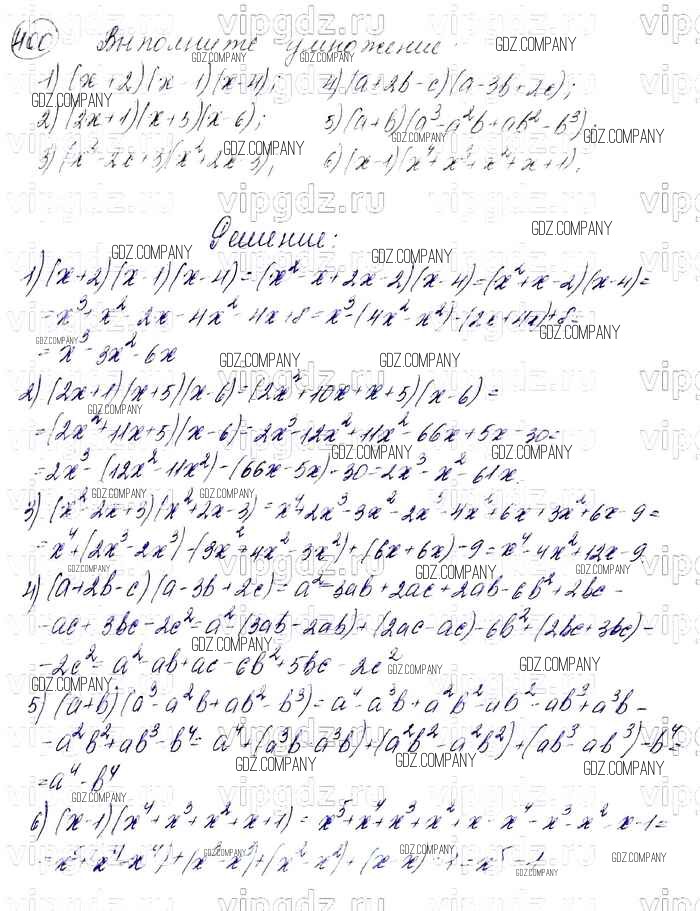 400 Выполните умножение.
1) (x+2)(x-1)(x-4); 4) (a+2b-c)(a-3b+2c);
2) (2x+1)(x+5)(x-6); 5) (a+b)(a³-a²b+ab²-b³);
3) (x²-2x+3)(x²+2x-3); 6) (x-1)(x⁴+x³+x²+x+1).
Решение:
1) (x+2)(x-1)(x-4)=(x²-x+2x-2)(x-4)=(x²+x-2)(x-4)=
=x³+x²-2x-4x²-4x+8=x³-(4x²-x²)-(2x+4x)+8=
=x³-3x²-6x
2) (2x+1)(x+5)(x-6)=(2x²+10x+x+5)(x-6)=
=(2x²+11x+5)(x-6)=2x³-12x²+11x²-66x+5x-30=
=2x³-(12x²-11x²)-(66x-5x)-30=2x³-x²-61x
3) (x²-2x+3)(x²+2x-3)=x⁴+2x³-3x²-2x³-4x²+6x+3x²+6x-9=
=x⁴+(2x³-2x³)-(3x²+4x²-3x²)+(6x+6x)-9=x⁴-4x²+12x-9
4) (a+2b-c)(a-3b+2c)=a²-3ab+2ac+2ab-6b²+2bc-
-ac+3bc-2c²=a²-(3ab-2ab)+(2ac-ac)-6b²+(2bc+3bc)-
-2c²=a²-ab+ac-6b²+5bc-2c²
5) (a+b)(a³-a²b+ab²-b³)=a⁴-a³b+a²b²-ab²-ab³+a³b-
-a²b²+ab³-b⁴=a⁴+(a³b-a³b)+(a²b²-a²b²)+(ab³-ab³)-b⁴=
=a⁴-b⁴
6) (x-1)(x⁴+x³+x²+x+1)=x⁵+x⁴+x³+x²+x-x⁴-x³-x²-x-1=
=x⁵+(x⁴-x⁴)+(x³-x³)+(x²-x²)+(x-x)-1=x⁵-1